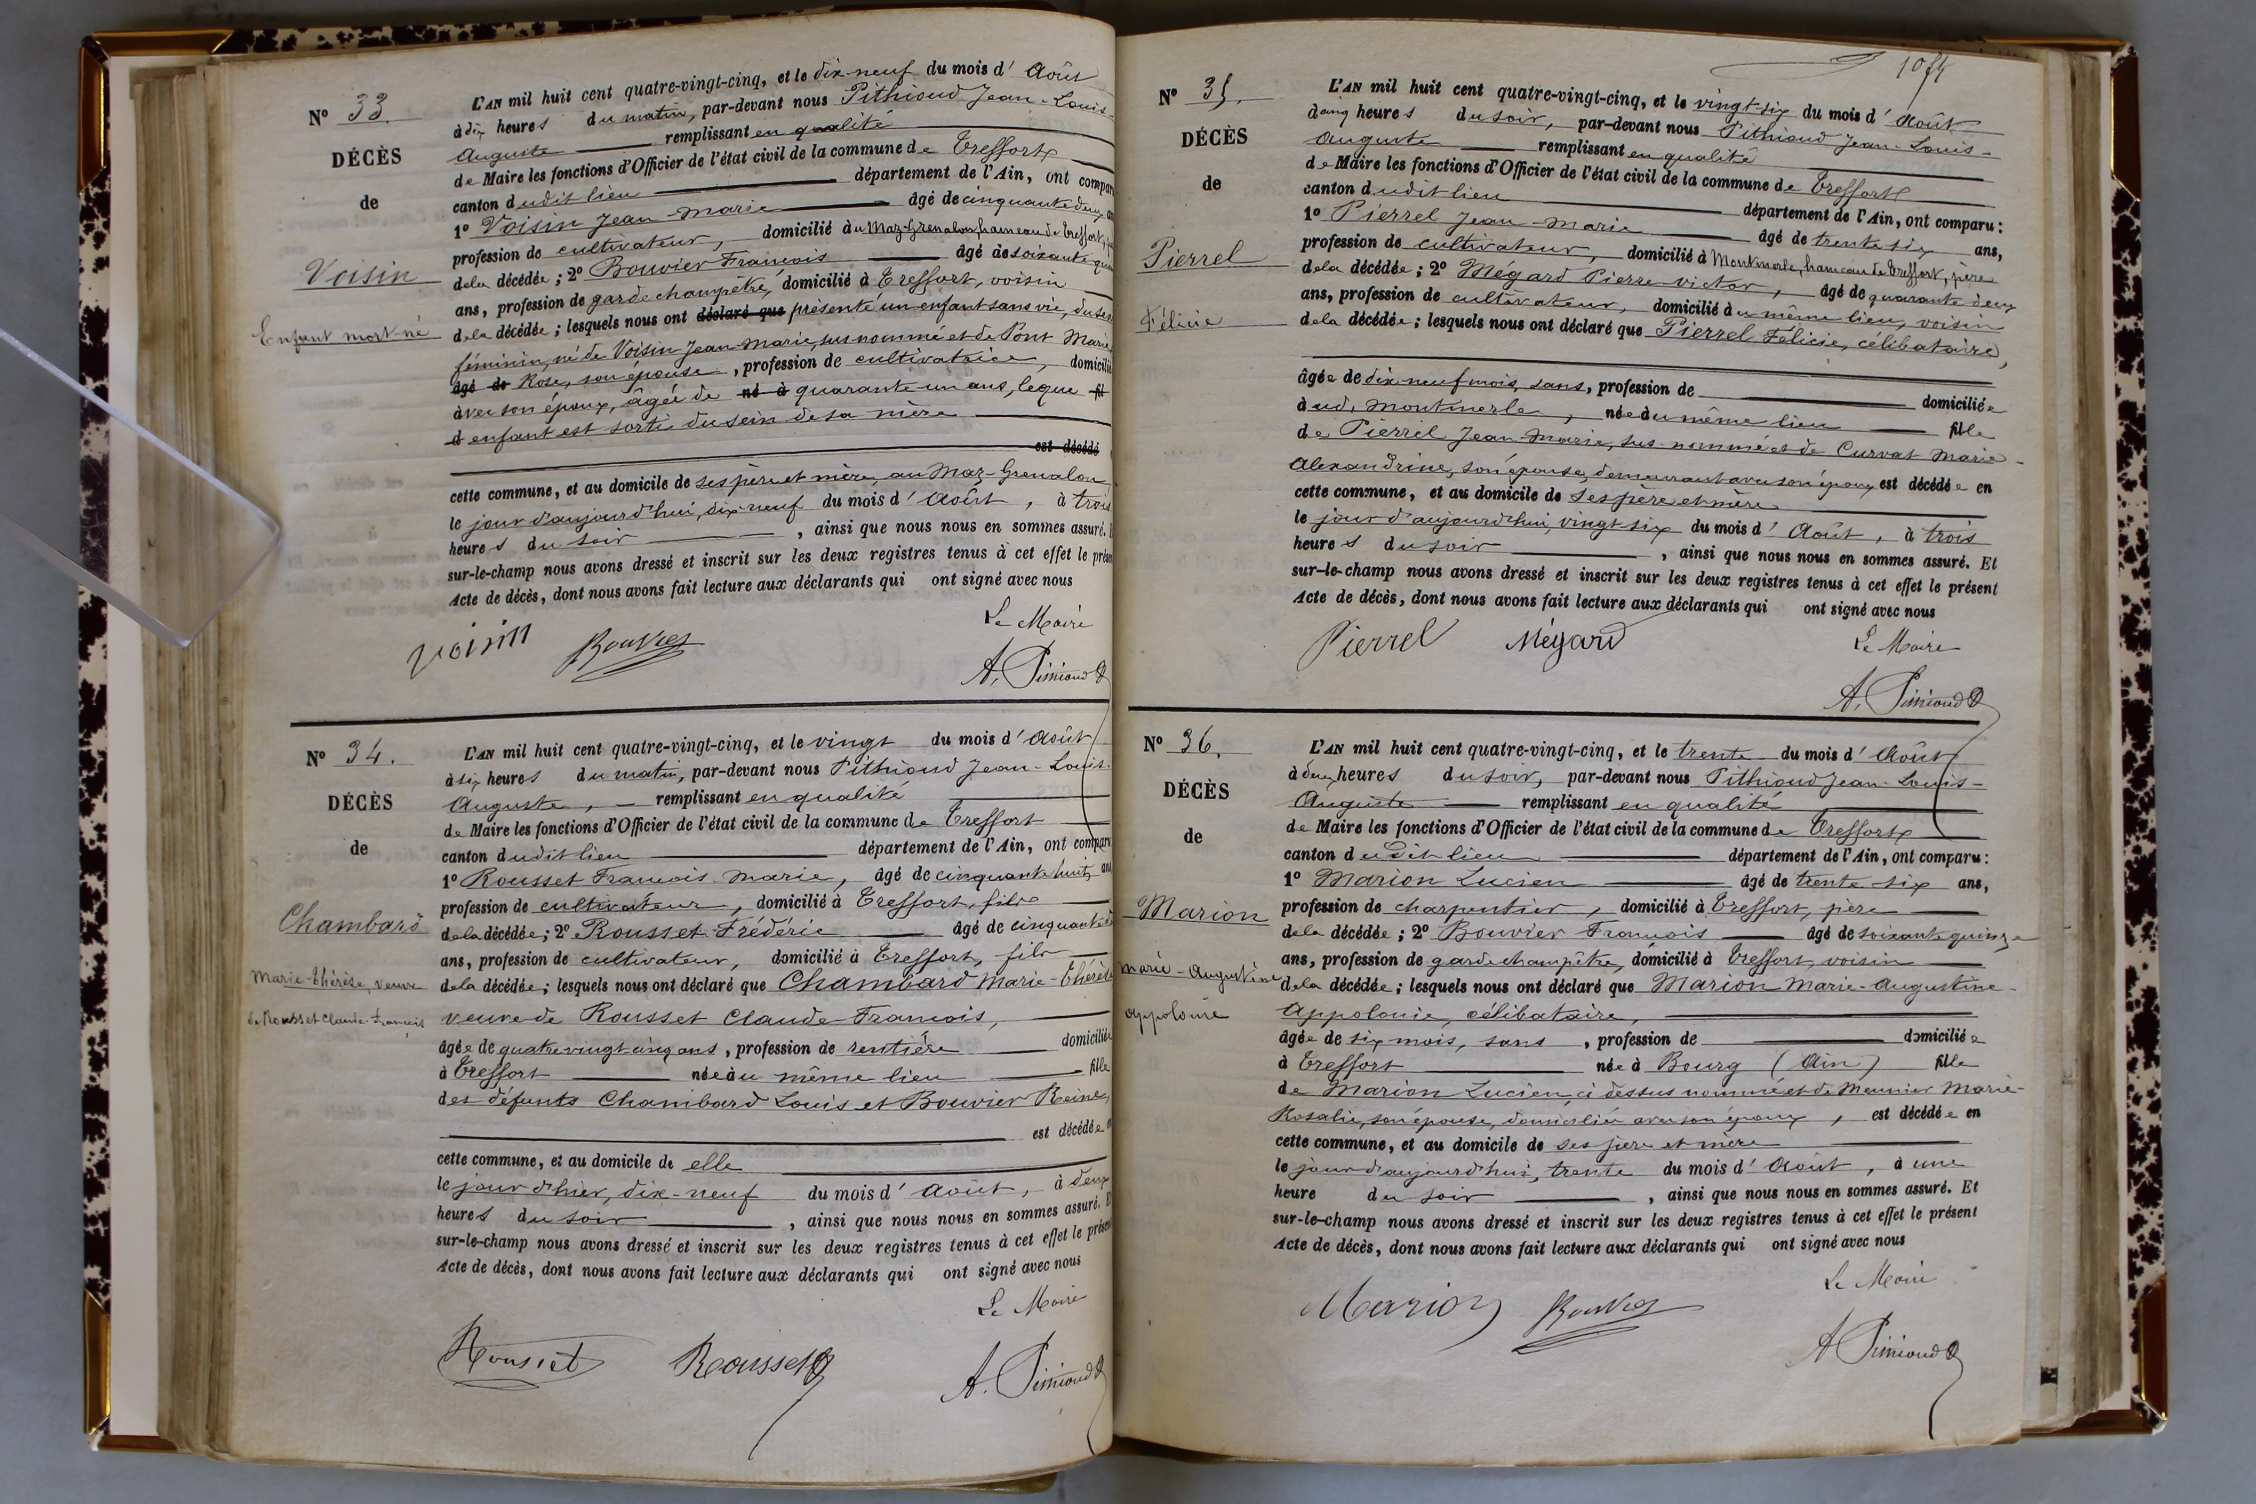 N° 33.
DÉCÈS
de
Voisin
Enfant mort-né
L'AN mil huit cent quatre-vingt-cinq, et le dix-neuf du mois d' Août
à dix heures du matin, par-devant nous Pithioud Jean-Louis-
Auguste remplissant en qualité
de Maire les fonctions d'Officier de l'état civil de la commune de Treffort
canton dudit lieu département de l'Ain, ont comparu
1° Voisin Jean-Marie âgé de cinquante deux ans
profession de cultivateur, domicilié au Maz-Grenalon, hameau de Treffort,
de la décédée; 2° Bouvier François âgé de soixante quin
ans, profession de garde champêtre, domicilié à Treffort, voisin
de la décédée; lesquels nous ont déclaré que présenté un enfant sans vie, du sexe
féminin, né de Voisin Jean Marie, sus nommé et de Pont Marie
âgé de Rose, son épouse, profession de cultivatrice, domicilié
avec son époux, âgée de né à quarante-un ans, leque fil
d enfant est sorti du sein de sa mère
est décédé
cette commune, et au domicile de ses père et mère, au Maz-Grenalon
le jour d'aujourd'hui, dix-neuf du mois d' Août, à trois
heures du soir, ainsi que nous nous en sommes assuré. E
sur-le-champ nous avons dressé et inscrit sur les deux registres tenus à cet effet le présen
Acte de décès, dont nous avons fait lecture aux déclarants qui ont signé avec nous
Le Maire
Voisin Bouvier
A. Pithioud
N° 34.
DÉCÈS
de
Chambard
Marie-Thérèse, veuve
de Rousset Claude-François
L'AN mil huit cent quatre-vingt-cinq, et le vingt du mois d' Août
à six heures du matin, par-devant nous Pithioud Jean-Louis-
Auguste, remplissant en qualité
de Maire les fonctions d'Officier de l'état civil de la commune de Treffort
canton dudit lieu département de l'Ain, ont comparu
1° Rousset François Marie, âgé de cinquante huit ans
profession de cultivateur, domicilié à Treffort, fils
de la décédée; 2° Rousset Frédéric âgé de cinquante
ans, profession de cultivateur, domicilié à Treffort, fils
de la décédée; lesquels nous ont déclaré que Chambard Marie-Thérèse
veuve de Rousset Claude-François,
âgée de quatre vingt-cinq ans, profession de rentière domiciliée
à Treffort née au même lieu fille
des défunts Chambard Louis et Bouvier Reine,
est décédée en
cette commune, et au domicile de elle
le jour d'hier, dix-neuf du mois d' Août, à deux
heures du soir, ainsi que nous nous en sommes assuré. E
sur-le-champ nous avons dressé et inscrit sur les deux registres tenus à cet effet le présen
Acte de décès, dont nous avons fait lecture aux déclarants qui ont signé avec nous
Le Maire
Rousset Rousset
A. Pithioud
N° 35.
DÉCÈS
de
Pierrel
Félicie
L'AN mil huit cent quatre-vingt-cinq, et le vingt-six du mois d' Août
à cinq heures du soir, par-devant nous Pithioud Jean-Louis-
Auguste remplissant en qualité
de Maire les fonctions d'Officier de l'état civil de la commune de Treffort
canton dudit lieu département de l'Ain, ont comparu:
1° Pierrel Jean-Marie âgé de trente six ans,
profession de cultivateur, domicilié à Montmerle, hameau de Treffort, père
de la décédée; 2° Mégard Pierre-Victor, âgé de quarante deux
ans, profession de cultivateur, domicilié au même lieu, voisin
de la décédée; lesquels nous ont déclaré que Pierrel Félicie, célibataire,
âgée de dix-neuf mois, sans, profession de domiciliée
à ud. Montmerle, née au même lieu fille
de Pierrel Jean Marie, sus-nommé et de Curvat Marie-
Alexandrine, son épouse, demeurant avec son époux est décédée en
cette commune, et au domicile de ses père et mère
le jour d'aujourd'hui, vingt-six du mois d' Août, à trois
heures du soir, ainsi que nous nous en sommes assuré. Et
sur-le-champ nous avons dressé et inscrit sur les deux registres tenus à cet effet le présent
Acte de décès, dont nous avons fait lecture aux déclarants qui ont signé avec nous
Pierrel Mégard Le Maire
A. Pithioud
N° 36.
DÉCÈS
de
Marion
Marie-Augustine
Appolonie
L'AN mil huit cent quatre-vingt-cinq, et le trente du mois d' Août
à deux heures du soir, par-devant nous Pithioud Jean-Louis-
Auguste remplissant en qualité
de Maire les fonctions d'Officier de l'état civil de la commune de Treffort
canton dudit lieu département de l'Ain, ont comparu:
1° Marion Lucien âgé de trente-six ans,
profession de charpentier, domicilié à Treffort, père
de la décédée; 2° Bouvier François âgé de soixante quinze
ans, profession de garde champêtre, domicilié à Treffort, voisin
de la décédée; lesquels nous ont déclaré que Marion Marie-Augustine-
Appolonie, célibataire,
âgée de six mois, sans, profession de domiciliée
à Treffort née à Bourg (Ain) fille
de Marion Lucien, ci dessus nommé et de Meunier Marie-
Rosalie, son épouse, domiciliée avec son époux, est décédée en
cette commune, et au domicile de ses père et mère
le jour d'aujourd'hui, trente du mois d' Août, à une
heure du soir, ainsi que nous nous en sommes assuré. Et
sur-le-champ nous avons dressé et inscrit sur les deux registres tenus à cet effet le présent
Acte de décès, dont nous avons fait lecture aux déclarants qui ont signé avec nous
Le Maire
Marion Bouvier
A Pithioud